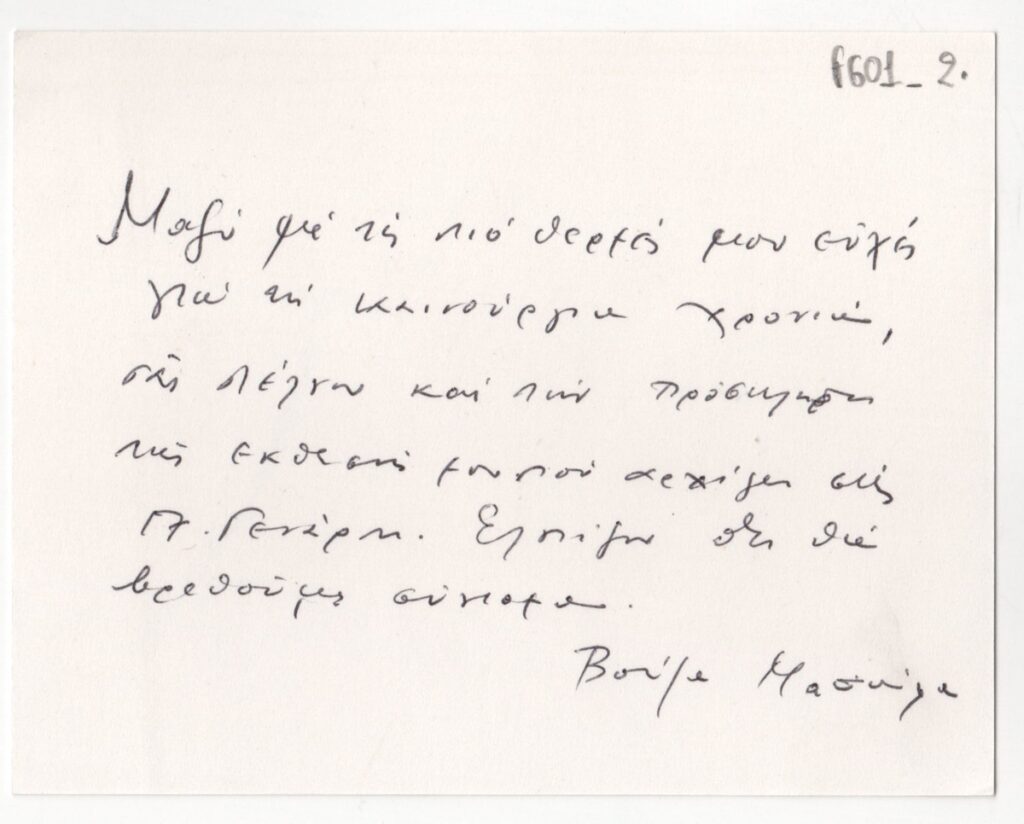 f601_2.
Μαζύ μέ τίς πιό θερμές μου εὐχές
γιά τή καινούργια χρονιά,
σᾶς στέλνω καί τήν πρόσκληση
τῆς εκθεσής μου πού αρχίζει στίς
Γενάρη. Ελπίζω ὅτι θά
βρεθοῦμε σύντομα.
Βούλα Μασούρα